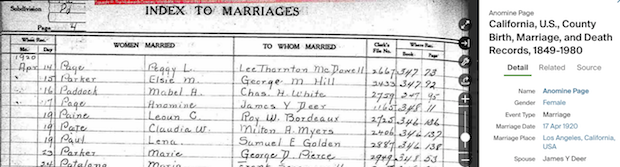 Subdivision Pg
INDEX TO MARRIAGES
Page 4
When Rec. WOMEN MARRIED TO WHOM MARRIED Clerk's File No. Where Rec.
Mo. Day Book Page
1920
Apr 14 Page Peggy L. Lee Thornton McDowell 2667 347 73
15 Parker Elsie M. George M. Hill 347 92
16 Paddock Mabel A. Chas. H. White 2759 347 95
17 Page Anomine James Y Deer 1165 348 11
19 Paine Leoun C. Roy W. Bordeaux 2725 346 136
19 Pate Claudia W. Milton A. Myers 346 137
19 Paul Lena Samuel E Golden 2887 346 138
23 Parker Marie George D. Pierce 348 53
24
Anomine Page
California, U.S., County
Birth, Marriage, and Death
Records, 1849-1980
Detail Related Source
Name Anomine Page
Gender Female
Event Type Marriage
Marriage Date 17 Apr 1920
Marriage Place Los Angeles, California,
USA
Spouse James Y Deer